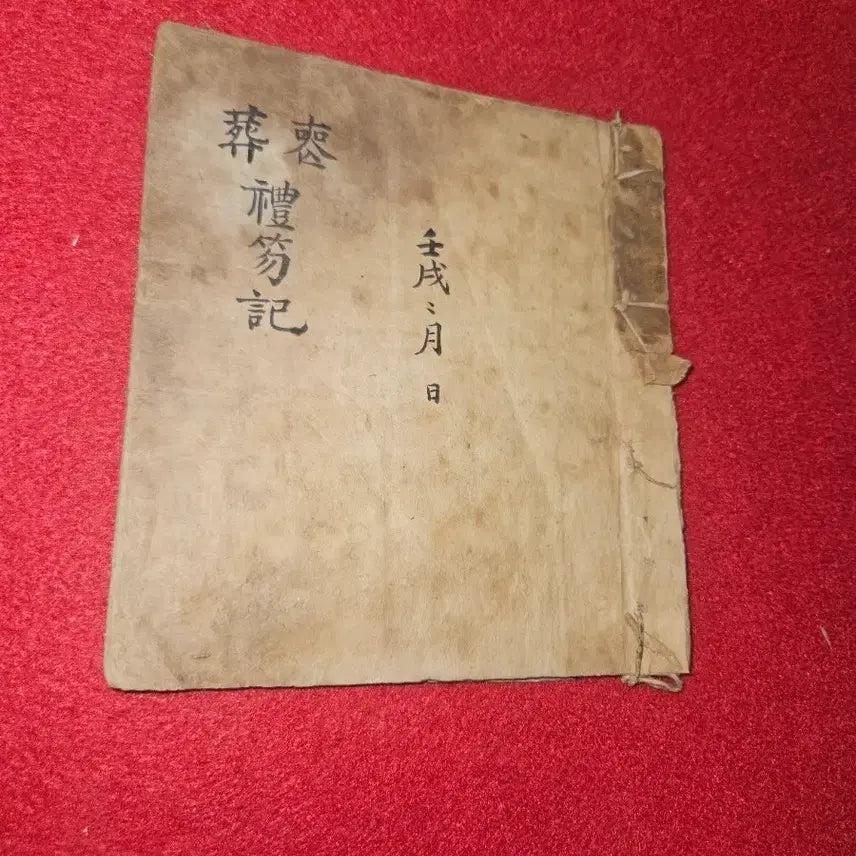 壬戌二月 日
喪葬禮笏記